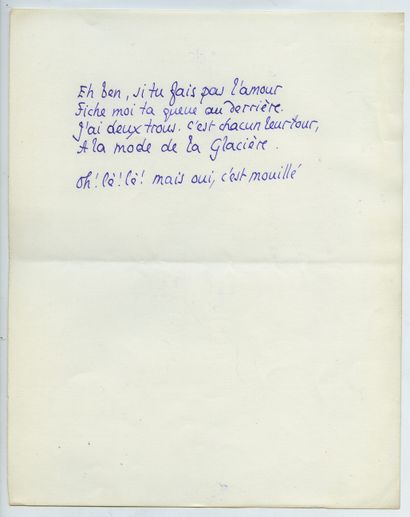 Eh ben, si tu fais pas l'amour
Fiche moi ta queue au derrière.
J'ai deux trous. c'est chacun leur tour,
A la mode de la Glacière.
Oh! là! là! mais oui, c'est mouillé